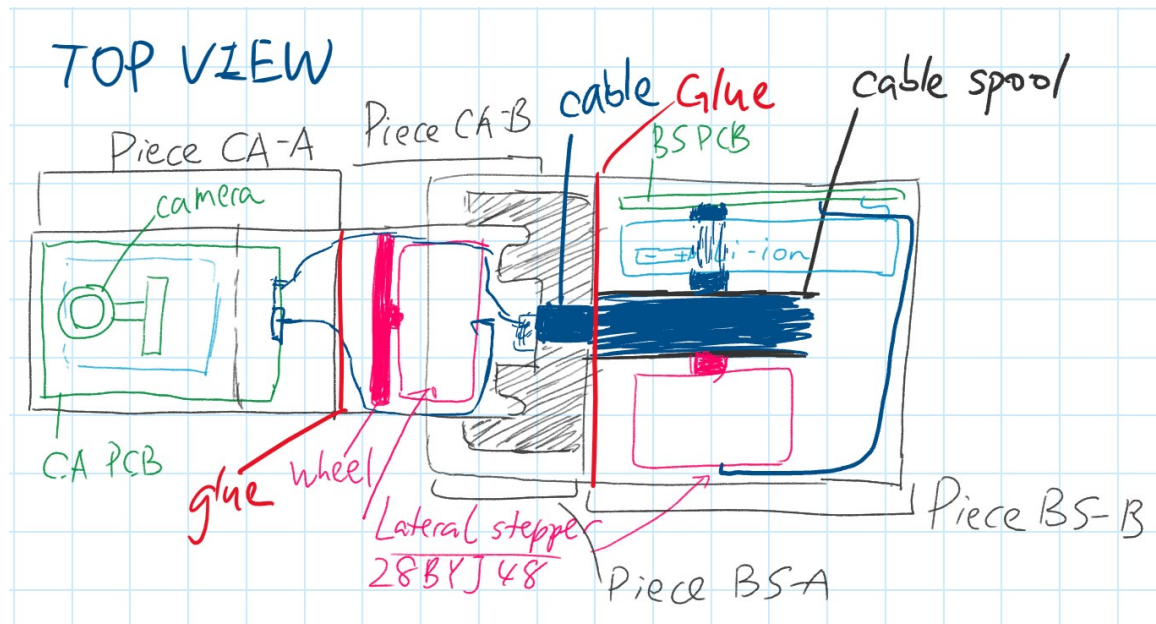 TOP VIEW
Piece CA-A
Piece CA-B
cable
Glue
cable spool
BS PCB
camera
Li-ion
CA PCB
glue
wheel
Lateral stepper
28BYJ48
Piece BS-A
Piece BS-B